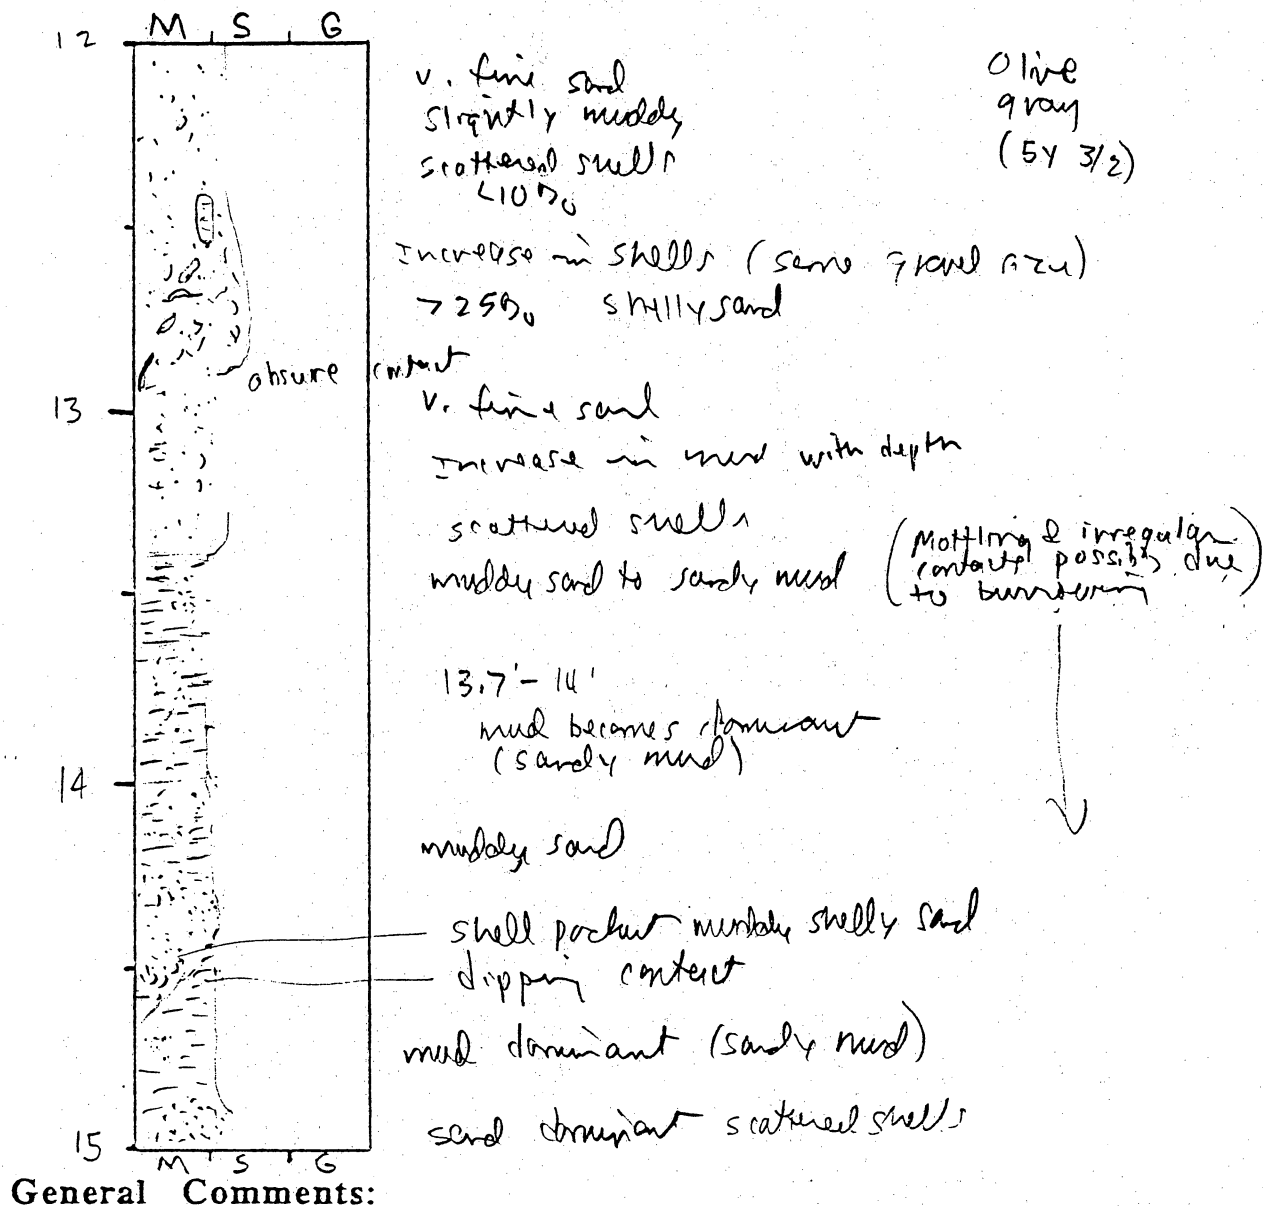 M S G
12
v. fine sand
slightly muddy
scattered shells
<10%
Olive
gray
(5Y 3/2)
Increase in shells (some gravel size)
>25% shelly sand
obsure contact
13
v. fine sand
Increase in mud with depth
scattered shells
muddy sand to sandy mud
(Mottling & irregular
contacts possibly due
to burrowing)
13.7'-14'
mud becomes dominant
(sandy mud)
14
muddy sand
shell pocket muddy shelly sand
dipping contact
mud dominant (sandy mud)
sand dominant scattered shells
15
M S G
General Comments: